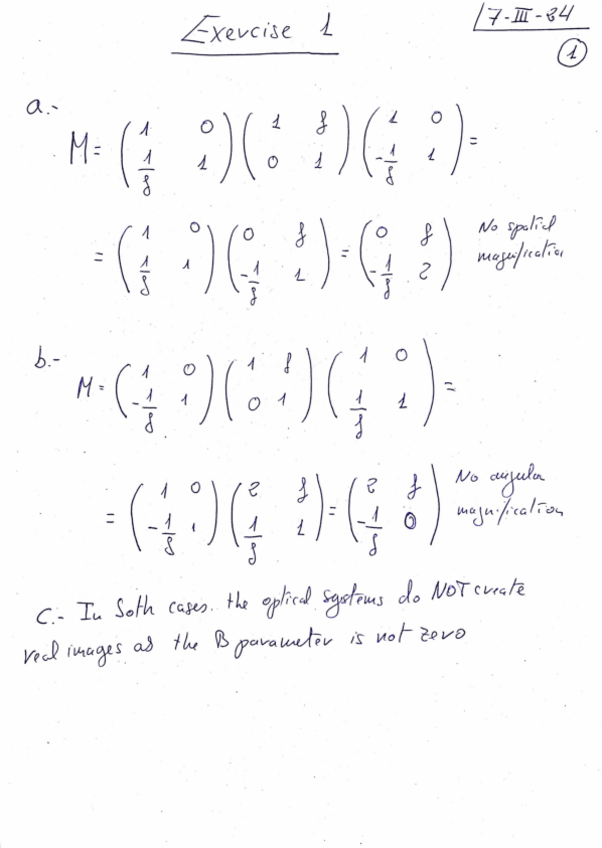 Exercise 1
17-III-84
1
a.-
M = (1 0; 1/f 1) (1 f; 0 1) (1 0; -1/f 1) =
= (1 0; 1/f 1) (0 f; -1/f 1) = (0 f; -1/f 2) No spatial magnification
b.-
M = (1 0; -1/f 1) (1 f; 0 1) (1 0; 1/f 1) =
= (1 0; -1/f 1) (2 f; 1/f 1) = (2 f; -1/f 0) No angular magnification
C.- In both cases. the optical systems do NOT create
real images as the B parameter is not zero